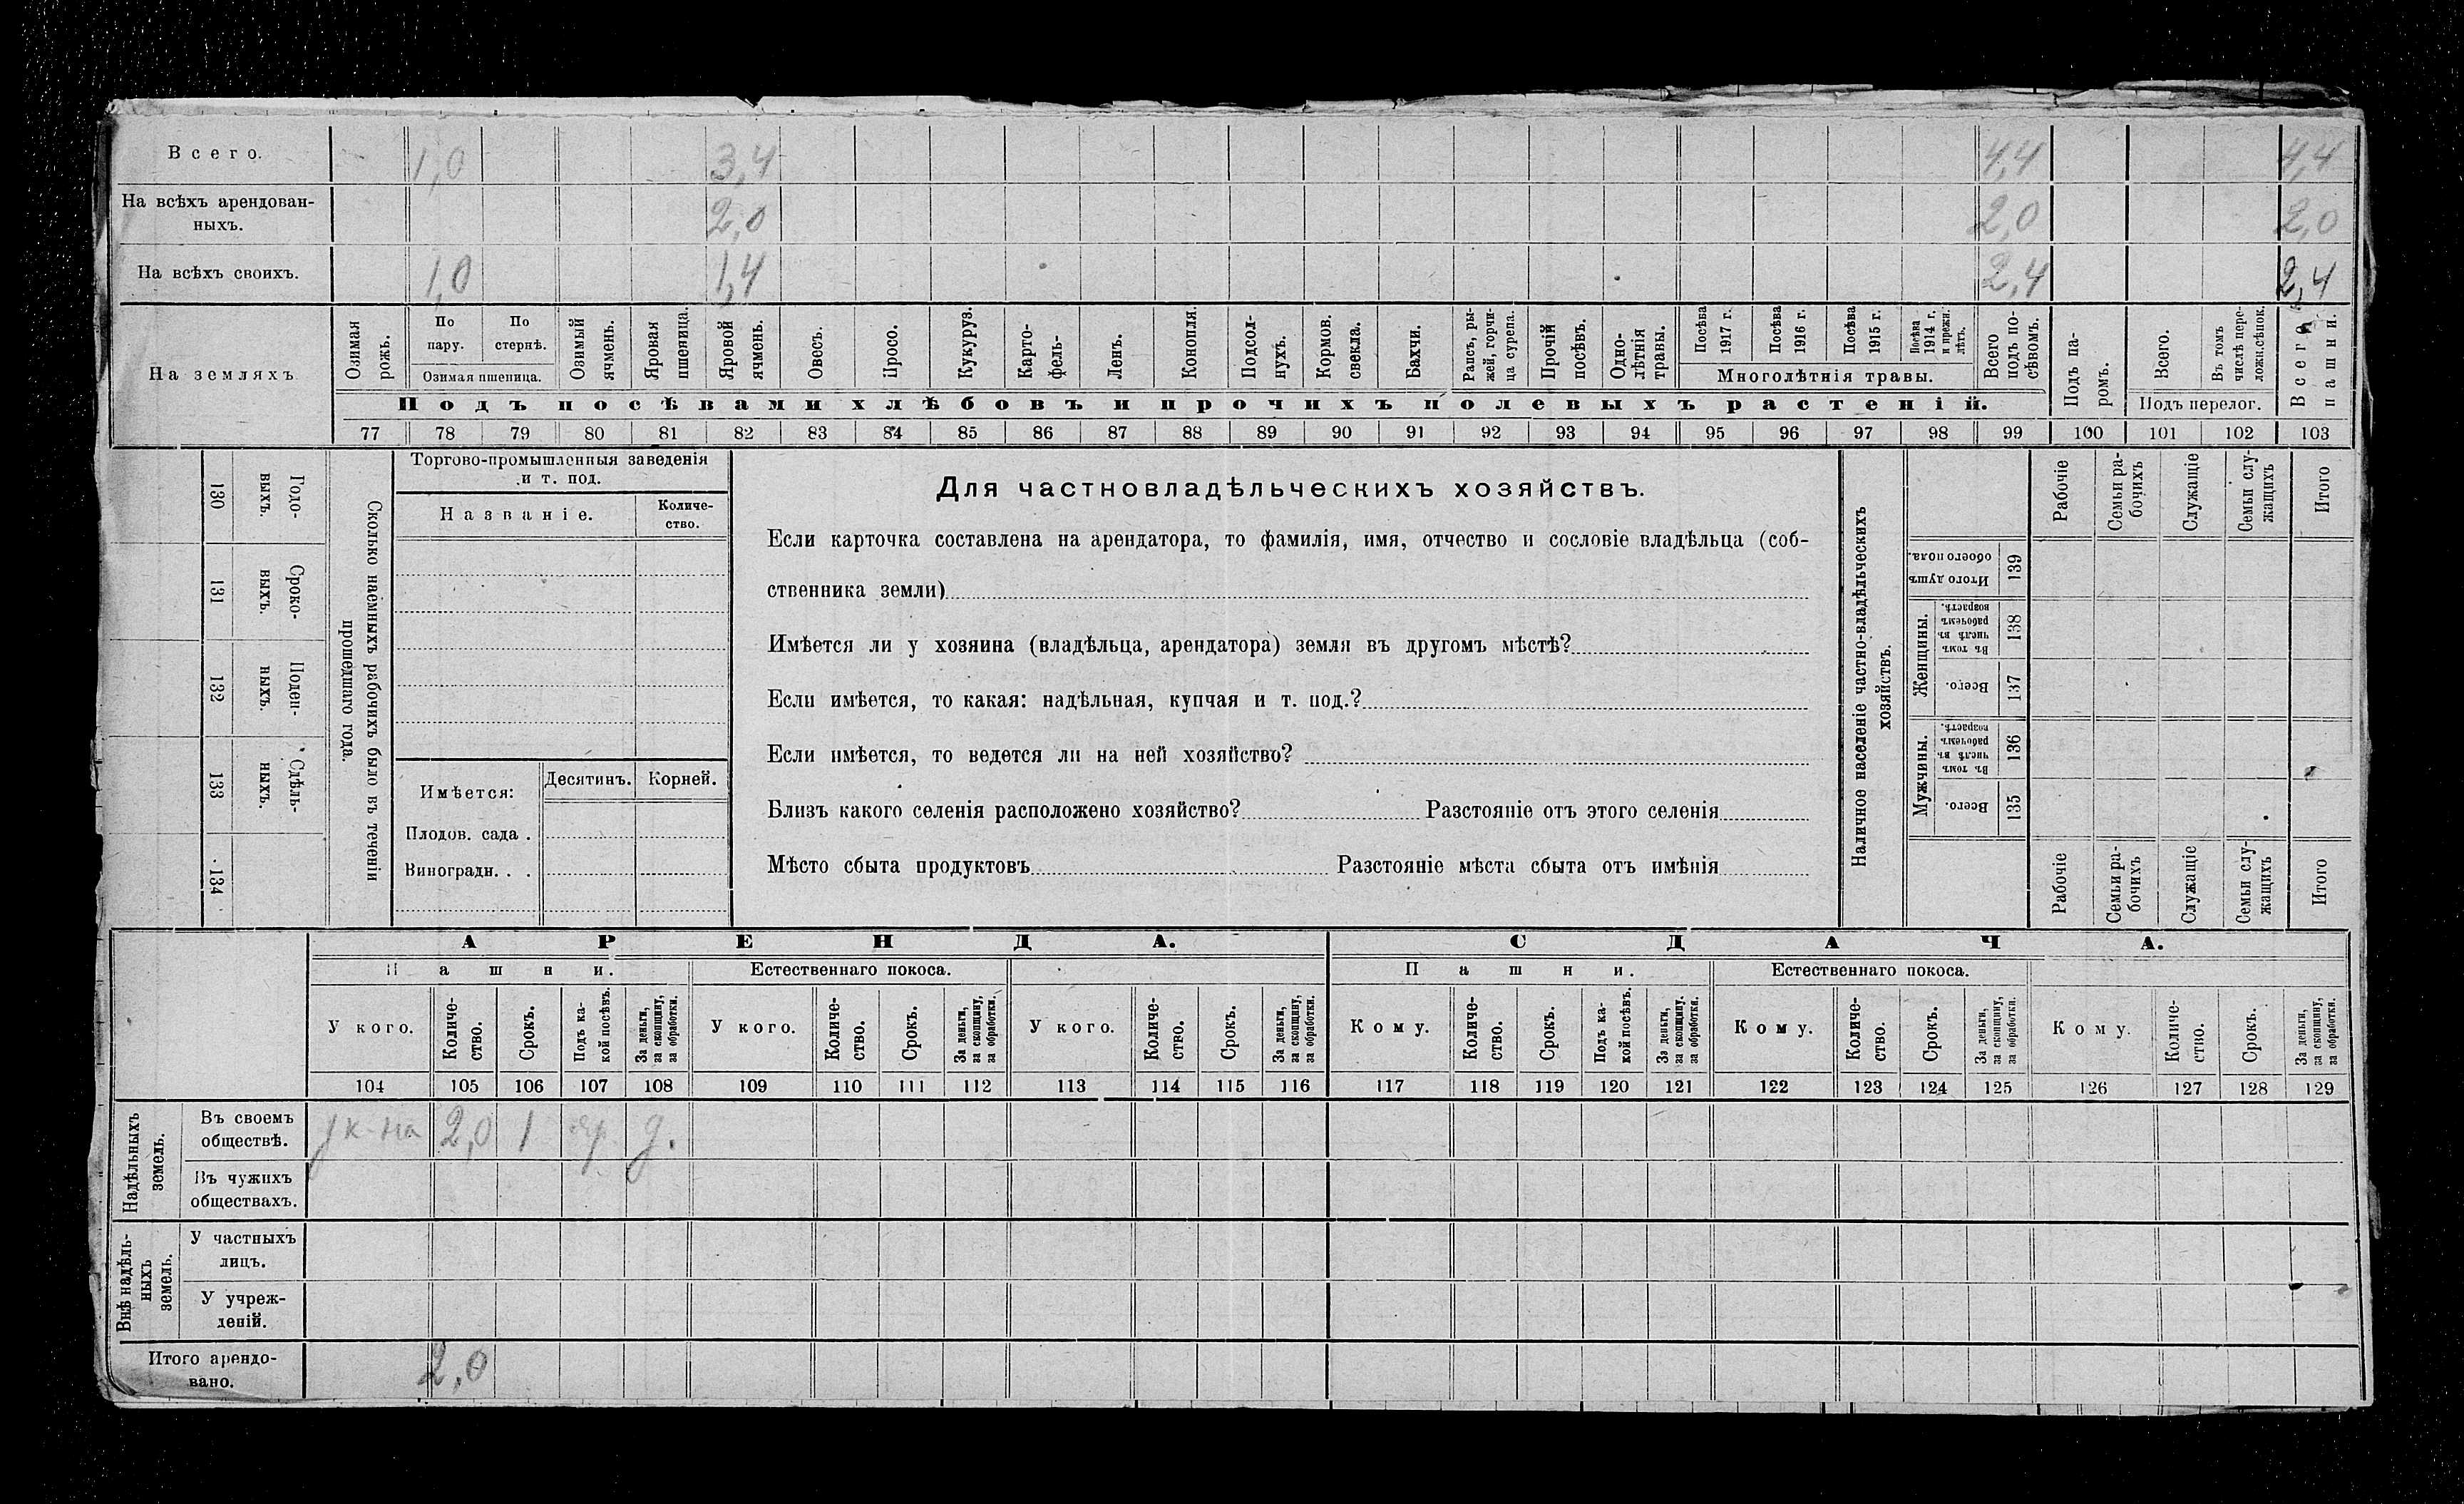 Всего. 1,0 3,4 4,4 4,4
На всѣхъ арендован-
ныхъ. 2,0 2,0 2,0
На всѣхъ своихъ. 1,0 1,4 2,4 2,4
На земляхъ
Озимая
рожь.
По
пару.
По
стернѣ.
Озимая пшеница.
Озимый
ячмень.
Яровая
пшеница.
Яровой
ячмень.
Овесъ.
Просо.
Кукуруз.
Карто-
фель-
Ленъ.
Конопля.
Подсол-
нухъ.
Кормов.
свекла.
Бахчи.
Рапсъ, ры-
жей, горчи-
ца сурепа.
Прочій
посѣвъ.
Одно-
лѣтнія
травы.
Посѣва
1917 г.
Посѣва
1916 г.
Посѣва
1915 г.
Посѣва
1914 г.
и прежн.
лѣтъ.
Многолѣтнія травы.
Всего
подъ по-
сѣвомъ.
Подъ посѣвами хлѣбовъ и прочихъ полевыхъ растеній.
Подъ па-
ромъ.
Всего.
Въ томъ
числѣ пере-
ложи.сѣнок.
Подъ перелог.
Всего
пашни.
77 78 79 80 81 82 83 84 85 86 87 88 89 90 91 92 93 94 95 96 97 98 99 100 101 102 103
130
Годо-
выхъ.
131
Сроко-
выхъ.
132
Поден-
ныхъ.
133
Сдѣль-
ныхъ.
134
Сколько наемныхъ рабочихъ было въ теченіи
прошедшаго года.
Торгово-промышленныя заведенія
и т. под.
Названіе.
Количе-
ство.
Имѣется:
Десятинъ. Корней.
Плодов. сада .
Виноградн. . .
Для частновладѣльческихъ хозяйствъ.
Если карточка составлена на арендатора, то фамилія, имя, отчество и сословіе владѣльца (соб-
ственника земли)
Имѣется ли у хозяина (владѣльца, арендатора) земля въ другомъ мѣстѣ?
Если имѣется, то какая: надѣльная, купчая и т. под.?
Если имѣется, то ведется ли на ней хозяйство?
Близъ какого селенія расположено хозяйство? Разстояніе отъ этого селенія
Мѣсто сбыта продуктовъ Разстояніе мѣста сбыта отъ имѣнія
Наличное населеніе частно-владѣльческихъ
хозяйствъ.
Рабочіе
Семьи ра-
бочихъ
Служащіе
Семьи слу-
жащихъ
Итого
Итого душъ
обоего пола.
139
Женщины.
Въ томъ
числѣ въ
рабочемъ
возрастѣ.
138
Всего.
137
Мужчины.
Въ томъ
числѣ въ
рабочемъ
возрастѣ.
136
Всего.
135
Рабочіе
Семьи ра-
бочихъ
Служащіе
Семьи слу-
жащихъ
Итого
АРЕНДА. СДАЧА.
Пашни. Естественнаго покоса. Пашни. Естественнаго покоса.
У кого.
Количе-
ство.
Срокъ.
Подъ ка-
кой посѣвъ.
За деньги,
за скопщину,
за обработки.
У кого.
Количе-
ство.
Срокъ.
За деньги,
за скопщину,
за обработки.
У кого.
Количе-
ство.
Срокъ.
За деньги,
за скопщину,
за обработки.
Кому.
Количе-
ство.
Срокъ.
Подъ ка-
кой посѣвъ.
За деньги,
за скопщину.
за обработки.
Кому.
Количе-
ство.
Срокъ.
За деньги,
за скопщину,
за обработки.
Кому.
Количе-
ство.
Срокъ.
За деньги,
за скопщину,
за обработки.
104 105 106 107 108 109 110 111 112 113 114 115 116 117 118 119 120 121 122 123 124 125 126 127 128 129
Надѣльныхъ
земель.
Въ своемъ
обществѣ.
у к-на 2,0 1 яр д.
Въ чужихъ
обществахъ.
Внѣ надѣль-
ныхъ
земель.
У частныхъ
лицъ.
У учреж-
деній.
Итого арендо-
вано. 2,0